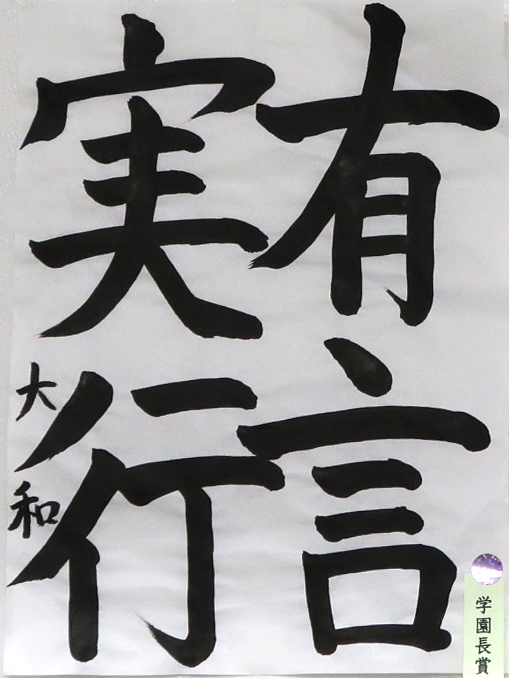 有言
実行
大和
学園長賞